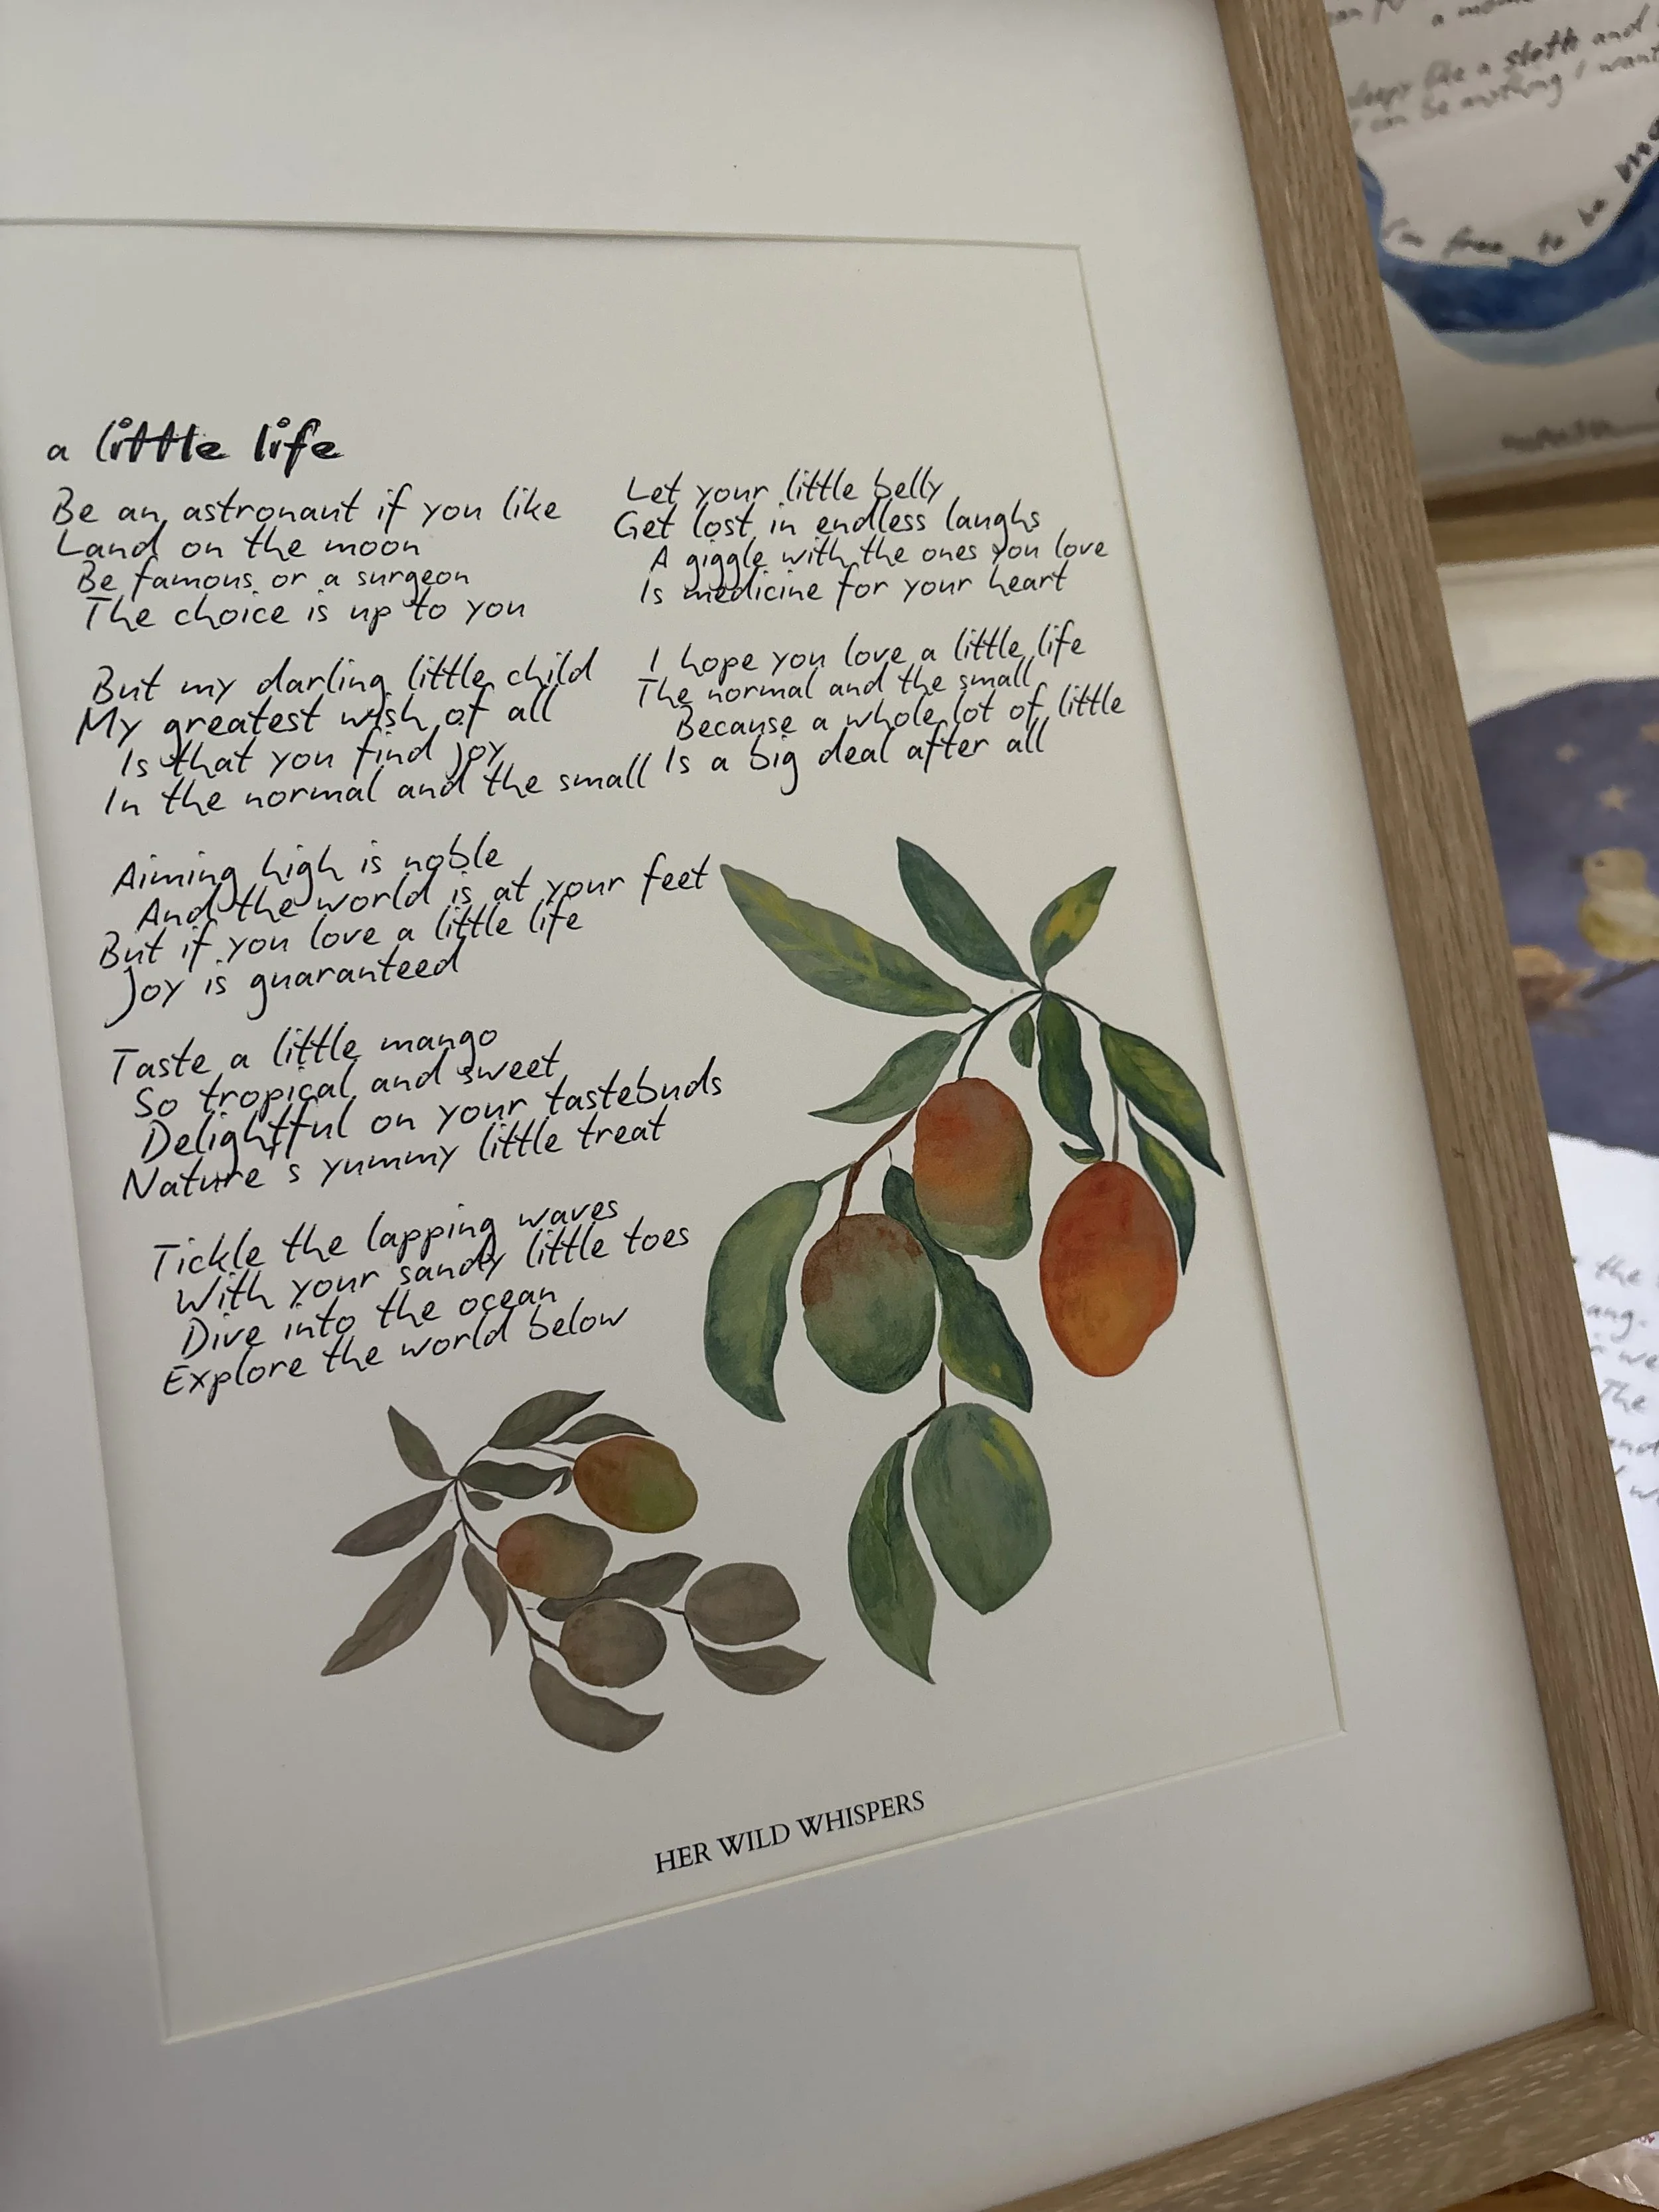 a little life
Be an astronaut if you like
Land on the moon
Be famous or a surgeon
The choice is up to you
But my darling little child
My greatest wish of all
Is that you find joy
In the normal and the small
Aiming high is noble
And the world is at your feet
But if you love a little life
Joy is guaranteed
Taste a little mango
So tropical and sweet
Delightful on your tastebuds
Nature s yummy little treat
Tickle the lapping waves
With your sandy little toes
Dive into the ocean
Explore the world below
Let your little belly
Get lost in endless laughs
A giggle with the ones you love
Is medicine for your heart
I hope you love a little life
The normal and the small
Because a whole lot of little
Is a big deal after all
HER WILD WHISPERS
a
like a sloth and
can be anything I want
I'm free to be
the
The